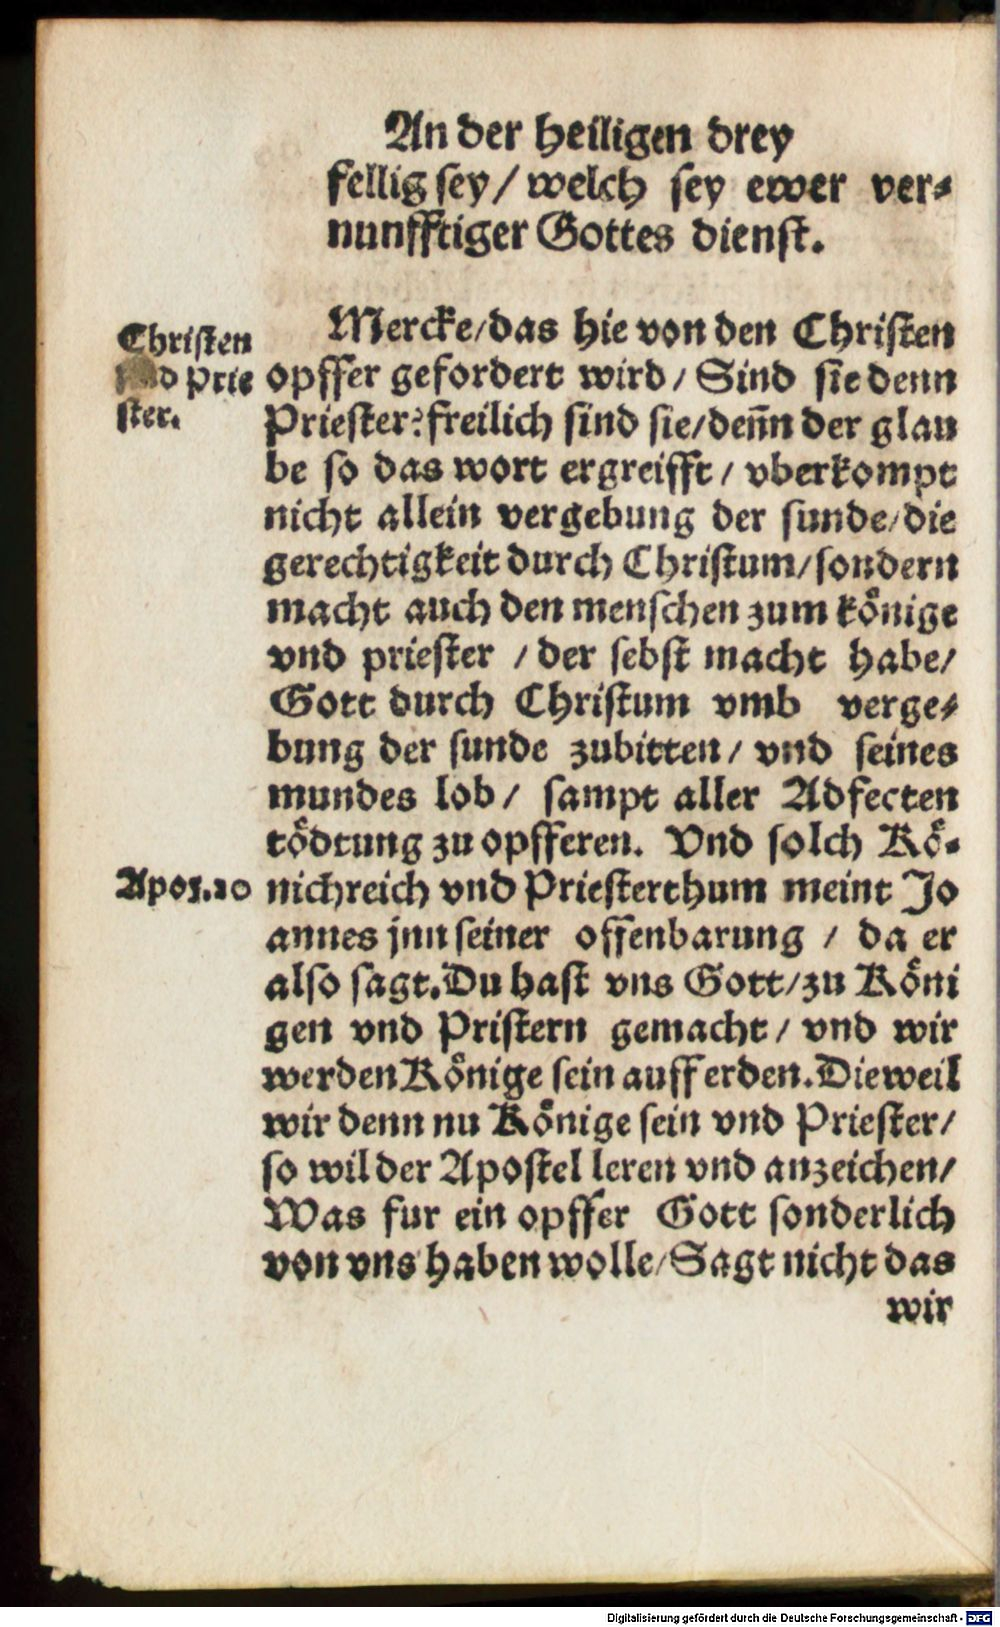 An der heiligen drey
fellig sey / welch sey ewer ver-
nunfftiger Gottes dienst.
Christen
Prie
ster.
Mercke / das hie von den Christen
opffer gefordert wird / Sind sie denn
Priester? freilich sind sie / deñn der glau
be so das wort ergreifft / vberkompt
nicht allein vergebung der sunde / die
gerechtigkeit durch Christum / sondern
macht auch den menschen zum könige
vnd priester / der sebst macht habe /
Gott durch Christum vmb verge-
bung der sunde zubitten / vnd seines
mundes lob / sampt aller Adfecten
tödtung zu opfferen. Vnd solch Kö-
Apoz. 20
nichreich vnd Priesterthum meint Jo
annes jnn seiner offenbarung / da er
also sagt. Du hast vns Gott / zu Köni
gen vnd Pristern gemacht / vnd wir
werden Könige sein auff erden. Dieweil
wir denn nu Könige sein vnd Priester /
so wil der Apostel leren vnd anzeichen /
Was fur ein opffer Gott sonderlich
von vns haben wolle / Sagt nicht das
wir
Digitalisierung gefördert durch die Deutsche Forschungsgemeinschaft - DFG